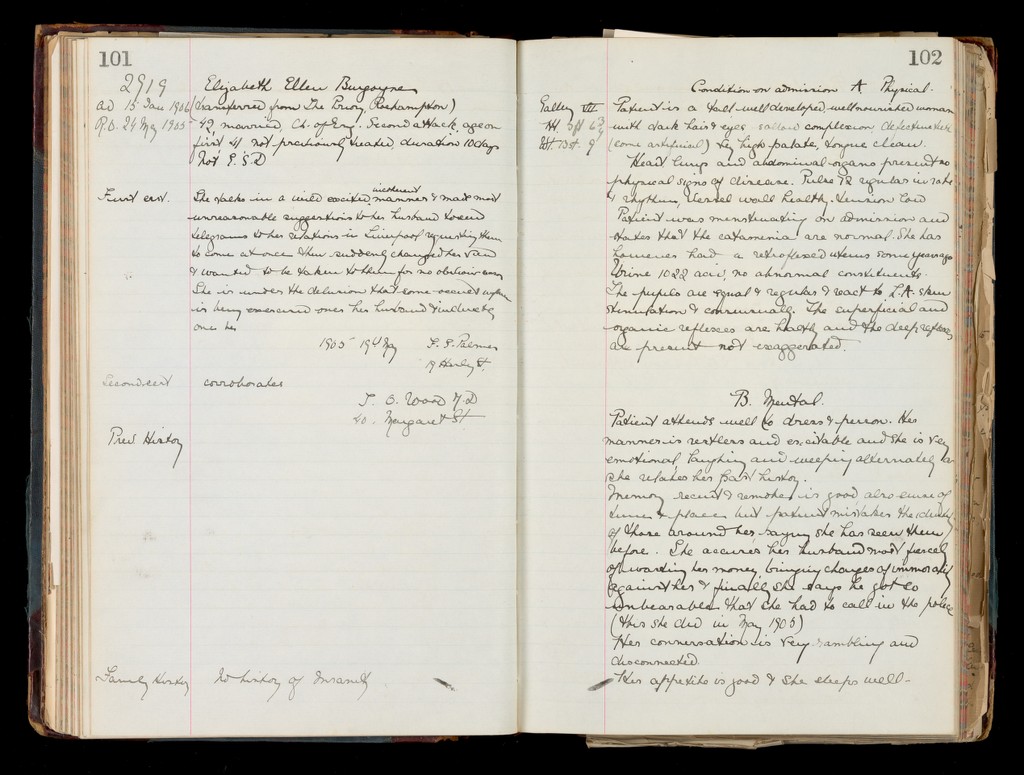 101
2919 Elizabeth Ellen Burgoyne
ad 15 Jan 1906 (transferred from The Priory Roehampton)
R.O. 24 May 1905 42, married, Ch. of Eng. Second attack, age on
first 41 not previously treated, duration 10 days
Not E. S. D
First cert. She talks in a wild excited incoherent manner & made most
unreasonable suggestions to her husband to send
telegrams to her relations in Liverpool requesting them
to come at once & then suddenly changed her
& wanted to be taken to them for no obvious
She is under the delusion that some occult
is being exercised over her husband & indirectly
over her
1905 19th May
19 Harley St.
Second cert corroborates
T. O. Wood M.D
40. Margaret St.
Prev History
Family History No history of Insanity
102
Condition on admission A Physical.
Gallery VII Patient is a tall well developed, well nourished woman
Ht 5ft 6 with dark hair & eyes sallow complexion, defective teeth
Wt. 7st 9 (some artificial) high palate, tongue clean.
Heart lungs and abdominal organs present no
physical signs of disease. Pulse 72 regular in rate
& rhythm, vessel wall healthy, tension low
Patient was menstruating on admission and
states that the catamenia are normal. She has
however had a retroflexed uterus some years ago
Urine 1022 acid, no abnormal constituents.
The pupils are equal & regular & react to L. A. skin
stimulation & consensually. The superficial and
organic reflexes are healthy and the deep reflexes
are present not exaggerated.
B. Mental.
Patient attends well to dress & person. Her
manner is restless and excitable and she is very
emotional, laughing and weeping alternately as
she relates her past history.
Memory recent & remote is good also sense of
time & place but patient mistakes the identity
of those around her, saying she has seen them
before. She accuses her husband most fiercely
of wasting her money, bringing charges of immorality
against her & finally she says he got so
unbearable that she had to call in the police
(this she did in May 1905)
Her conversation is very rambling and
disconnected.
Her appetite is good & she sleeps well-